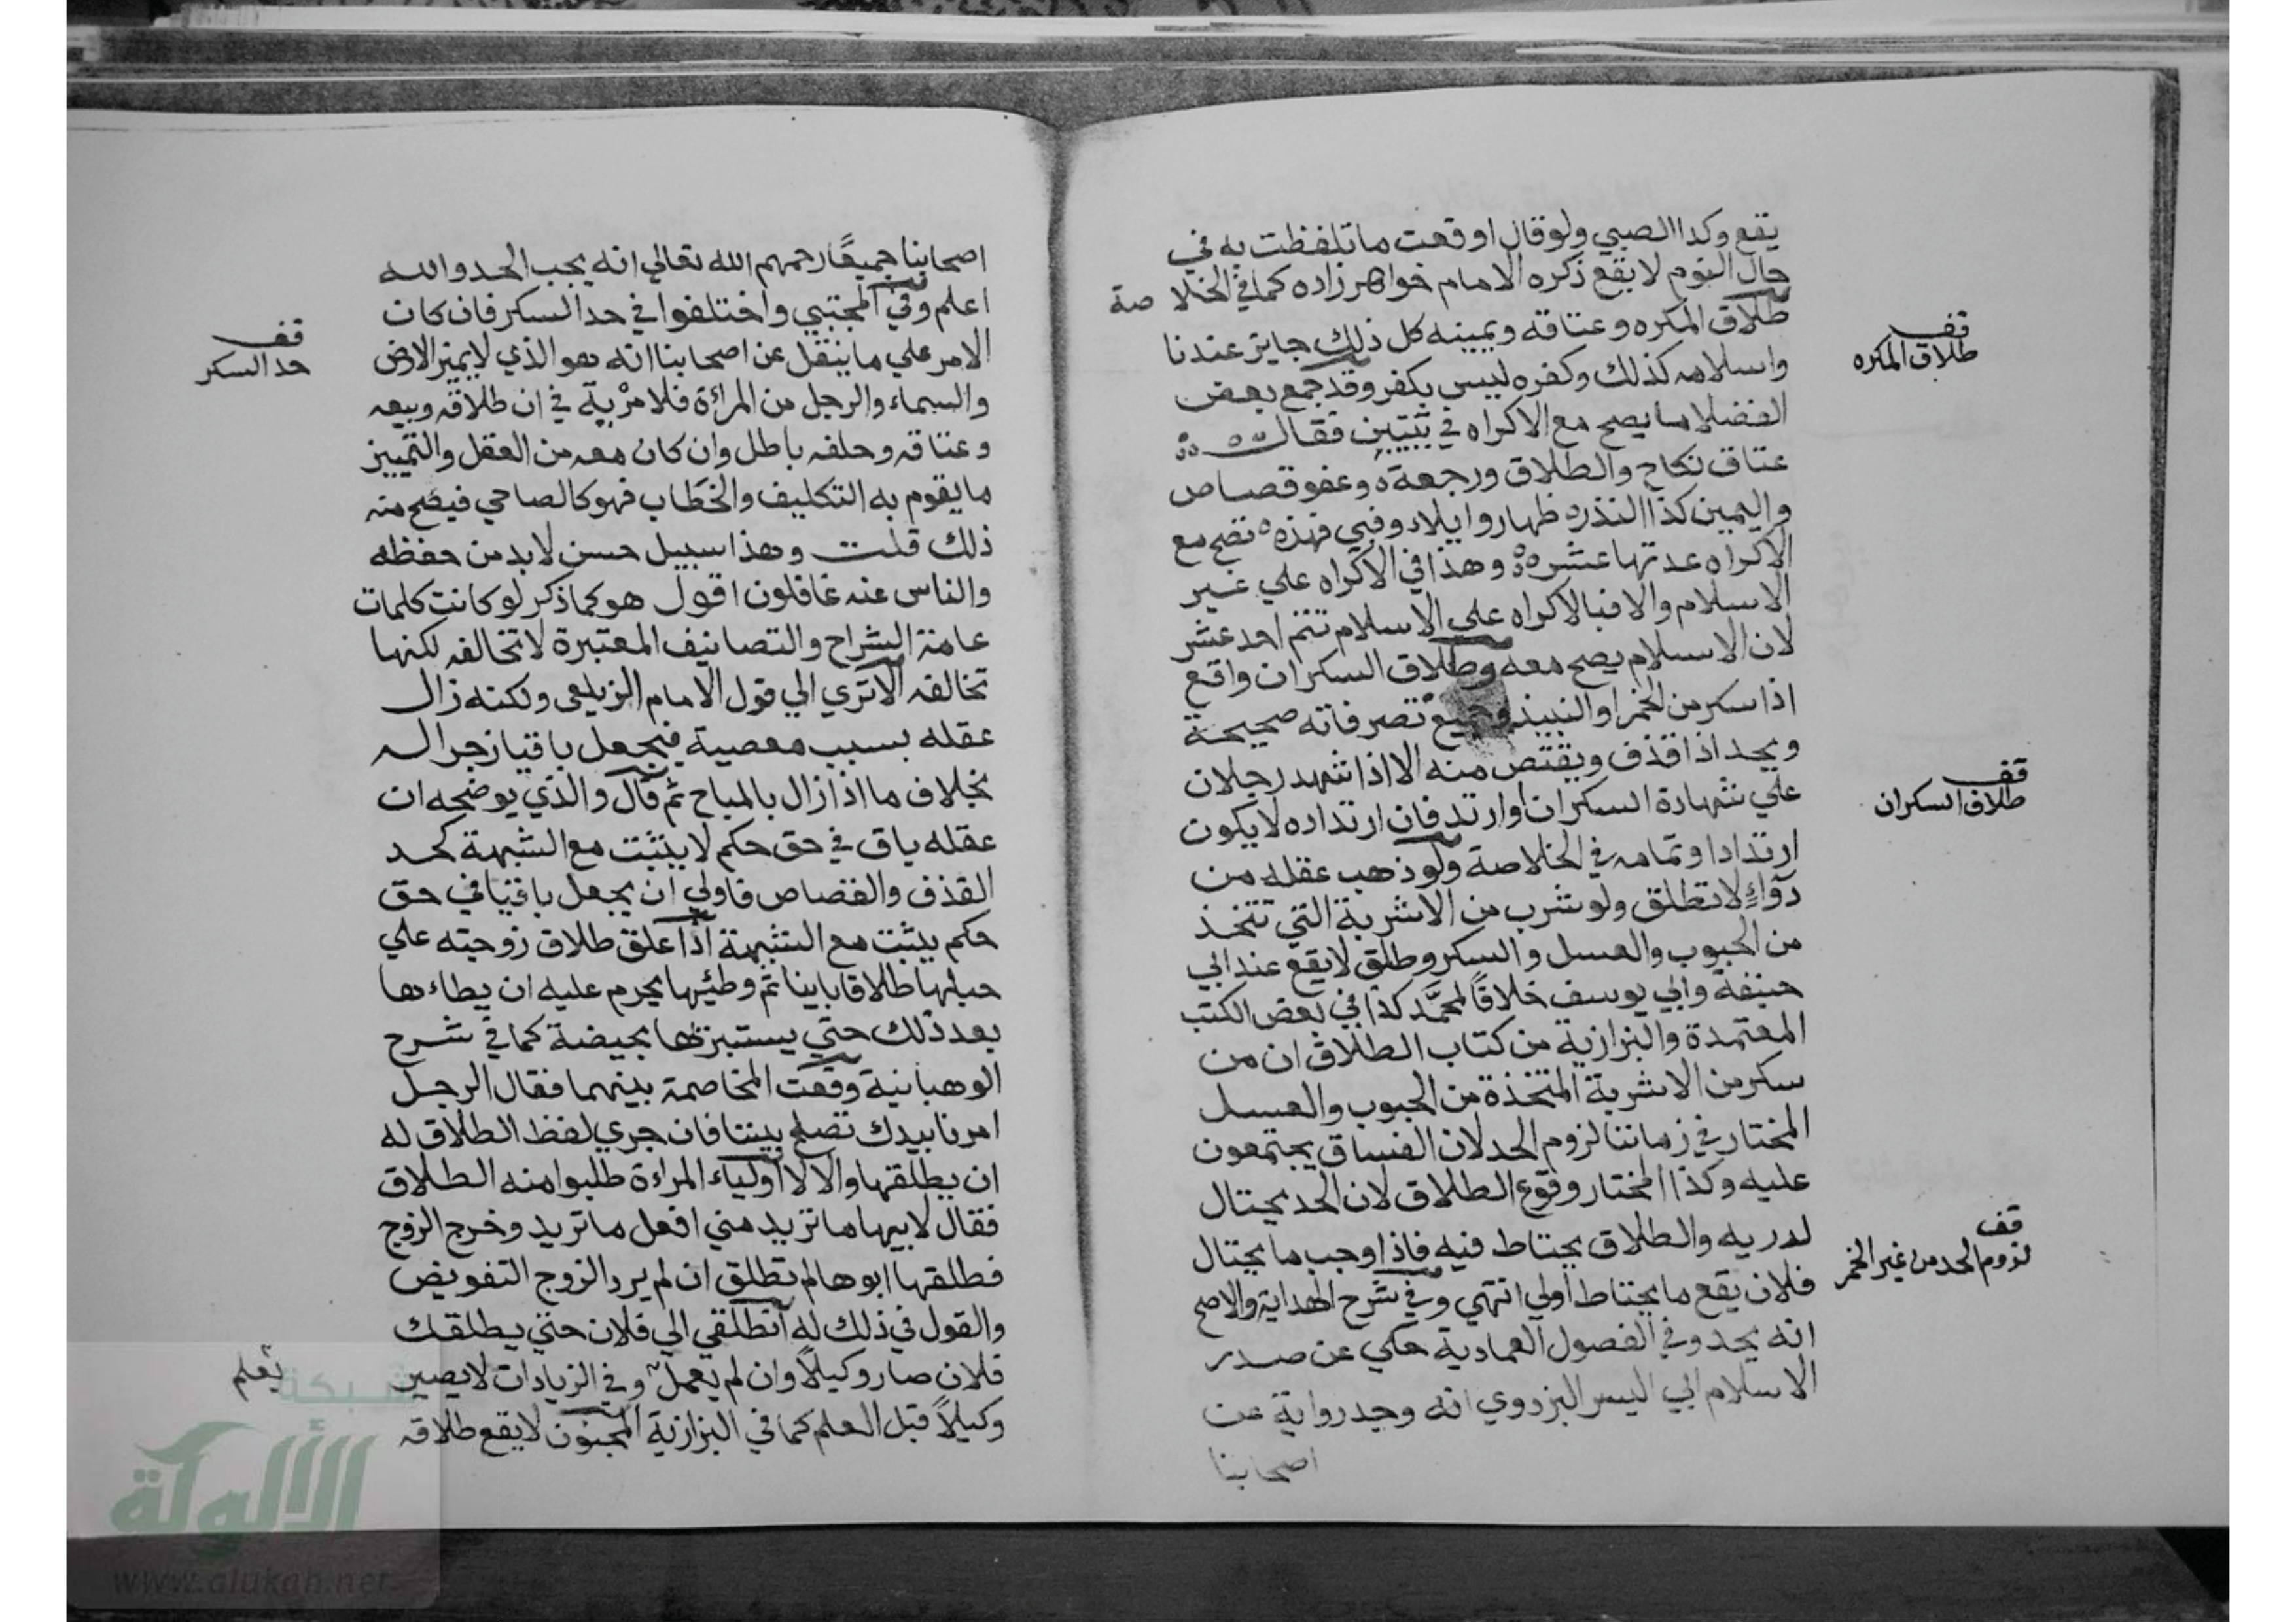 يقع وكذا الصبي ولو قال اوقعت ما تلفظت به في
حال النوم لا يقع ذكره الامام خواهر زاده كما في الخلاصة
طلاق المكره وعتاقه ويمينه كل ذلك جايز عندنا
واسلامه كذلك وكفره ليس بكفر وقد جمع بعض
الفضلا ما يصح مع الاكراه في بيتين فقال
عتاق نكاح والطلاق ورجعة وعفو قصاص
واليمين كذا النذر ظهار وايلاء وفيي فهذه تصح مع
الاكراه عدتها عشره وهذا في الاكراه علي غير
الاسلام والا فبالاكراه علي الاسلام تتم احد عشر
لان الاسلام يصح معه وطلاق السكران واقع
اذا سكر من الخمر او النبيذ وجميع تصرفاته صحيحة
ويحد اذا قذف ويقتص منه الا اذا شهد رجلان
علي شهادة السكران او ارتد فان ارتداده لا يكون
ارتدادا وتمامه في الخلاصة ولو ذهب عقله من
دوآءٍ لا تطلق ولو شرب من الاشربة التي تتخذ
من الحبوب والعسل والسكر وطلق لا يقع عند ابي
حنيفة وابي يوسف خلافًا لمحمَّد كذا في بعض الكتب
المعتمدة والبزازية من كتاب الطلاق ان من
سكر من الاشربة المتخذة من الحبوب والعسل
المختار في زماننا لزوم الحد لان الفساق يجتمعون
عليه وكذا المختار وقوع الطلاق لان الحد يحتال
لدريه والطلاق يحتاط فيه فاذا وجب ما يحتال
فلان يقع ما يحتاط اولي انتهي وفي شرح الهداية والاصح
انه يحد وفي الفصول العمادية حكي عن صدر
الاسلام ابي اليسر البزدوي انه وجد رواية عن
اصحابنا
قف
طلاق المكره
قف
طلاق السكران
قف
لزوم الحد من غير الخمر
اصحابنا جميعًا رحمهم الله تعالي انه يجب الحد والله
اعلم وفي المجتبي واختلفوا في حد السكر فان كان
الامر علي ما ينقل عن اصحابنا انه هو الذي لا يميز الارض
والسماء والرجل من المراءة فلا مرية في ان طلاقه وبيعه
وعتاقه وحلفه باطل وان كان معه من العقل والتمييز
ما يقوم به التكليف والخطاب فهو كالصاحي فيصح منه
ذلك قلت وهذا سبيل حسن لا بد من حفظه
والناس عنه غافلون اقول هو كما ذكر لو كانت كلمات
عامة الشراح والتصانيف المعتبرة لا تخالفه لكنها
تخالفه الا تري الي قول الامام الزيلعي ولكنه زال
عقله بسبب معصية فيجعل باقيا زجرا له
بخلاف ما اذا زال بالمباح ثم قال والذي يوضحه ان
عقله باق في حق حكم لا يثبت مع الشبهة كحد
القذف والقصاص فاولي ان يجعل باقيا في حق
حكم يثبت مع الشبهة اذا علق طلاق زوجته علي
حبلها طلاقا باينا ثم وطئها يحرم عليه ان يطاءها
بعد ذلك حتي يستبرئها بحيضة كما في شرح
الوهبانية وقعت المخاصمة بينهما فقال الرجل
امرنا بيدك تصلح بيننا فان جري لفظ الطلاق له
ان يطلقها والا لا اولياء المراءة طلبوا منه الطلاق
فقال لابيها ما تريد مني افعل ما تريد وخرج الزوج
فطلقها ابوها لم تطلق ان لم يرد الزوج التفويض
والقول في ذلك له انطلقي الي فلان حتي يطلقك
فلان صار وكيلًا وان لم يعمل وفي الزيادات لا يصير
وكيلًا قبل العلم كما في البزازية المجنون لا يقع طلاقه
قف
حد السكر
يعلم
شبكة
الألوكة
www.alukah.net